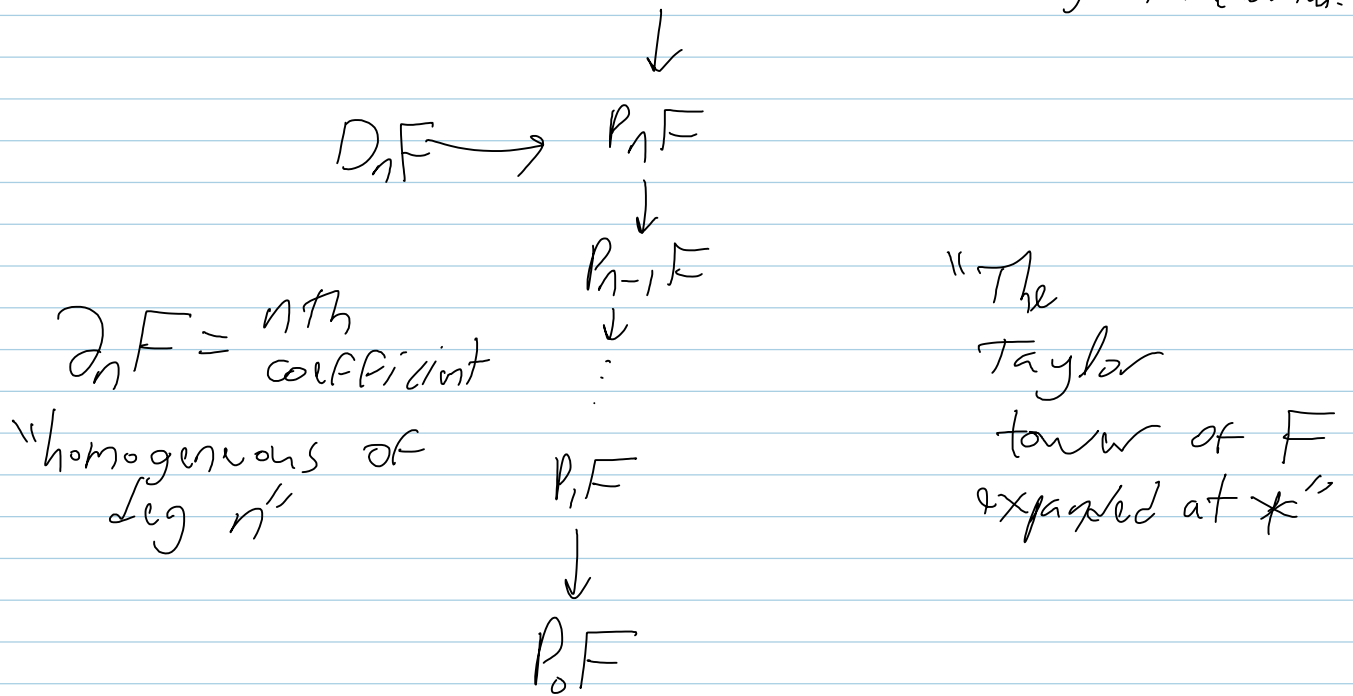 ↓
D_nF → P_nF
↓
P_{n-1}F
↓
⋮
∂_nF = nth
coefficient
"homogeneous of
deg n"
"The
Taylor
tower of F
expanded at *"
P_1F
↓
P_0F